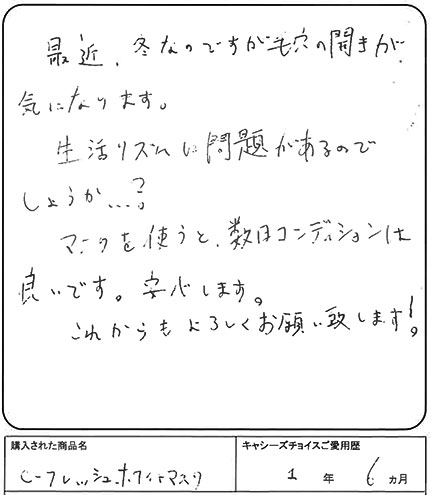 最近、冬なのですが毛穴の開きが
気になります。
生活リズムに問題があるので
しょうか…？
マスクを使うと、数日コンディションは
良いです。安心します。
これからもよろしくお願い致します！
購入された商品名
キャシーズチョイスご愛用歴
C-フレッシュホワイトマスク
1年 6ヵ月